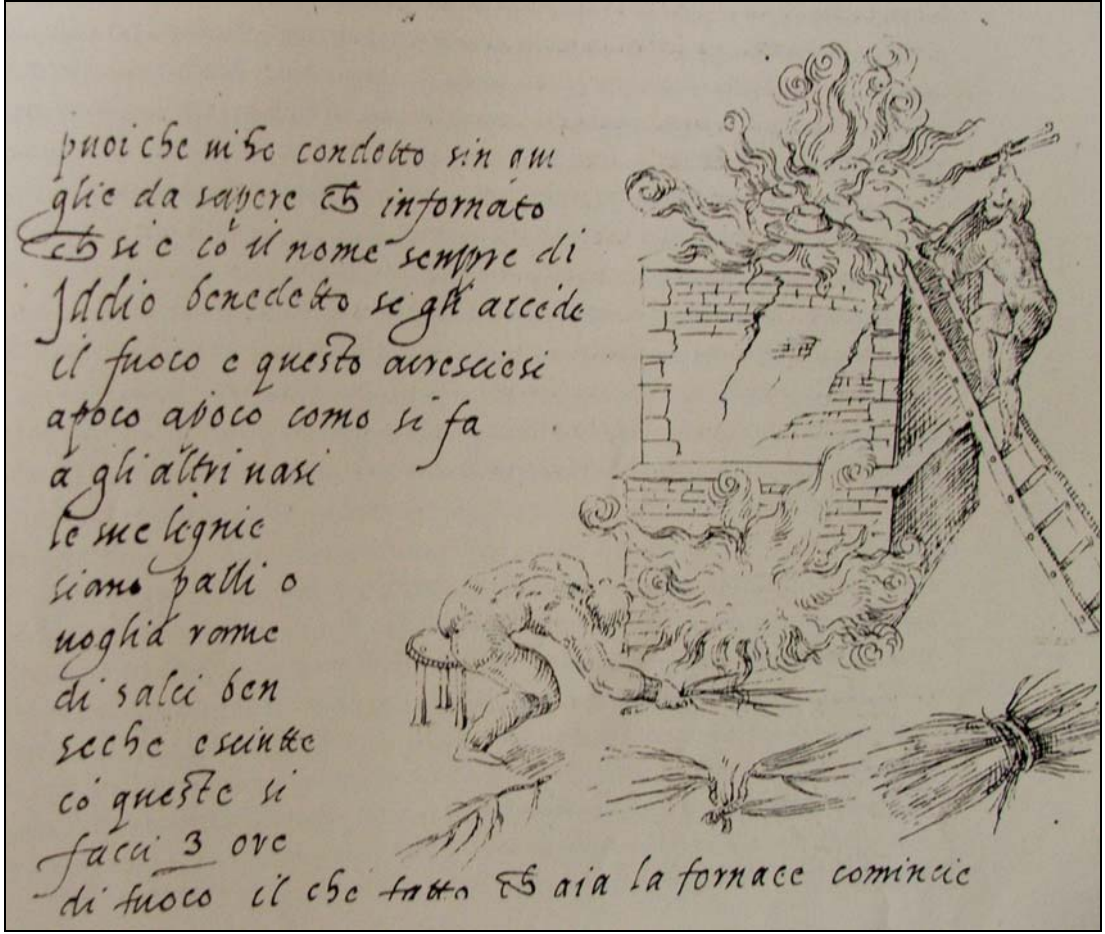 puoi che vi ho condotto sin qui
glie da sapere ch infornato
ch si e cō il nome sempre di
Iddio benedetto se gli accēde
il fuoco e questo acresciesi
apoco apoco como si fa
a gli altri vasi
le sue legnie
siano palli o
voglia rame
di salci ben
seche e sciutte
cō queste si
facci 3 ore
di fuoco il che fatto ch aia la fornace comincie